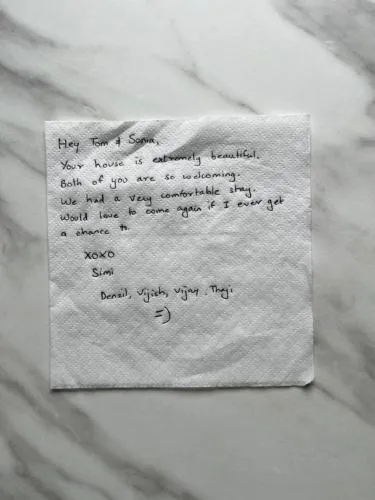 Hey Tom & Sonia,
Your house is extremely beautiful.
Both of you are so welcoming.
We had a very comfortable stay.
Would love to come again if I ever get
a chance to.
XOXO
Simi
Denzil, Vijish, Vijay, Theji
=)